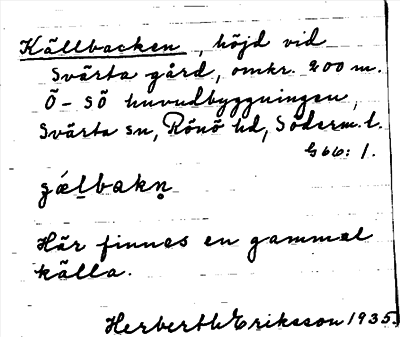 Källbacken, höjd vid
Svärta gård, omkr. 200 m.
Ö - SÖ huvudbyggningen,
Svärta sn, Rönö hd, Söderm. l.
G66: 1.
ʒǽl̠bakn̥
Här finnes en gammal
källa.
Herbert Eriksson 1935.